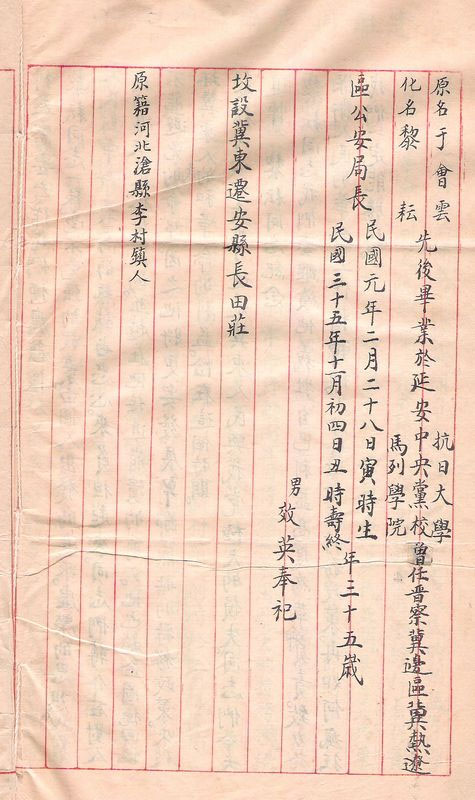 原名于會雲
化名黎 耘
先後畢業於延安中央黨校
抗日大學
馬列學院
曾任晋察冀邊區冀熱遼
區公安局長
民國元年二月二十八日寅時生
民國三十五年十一月初四日丑時壽終
年三十五歲
男效英奉祀
坟設冀東遷安縣長田莊
原籍河北滄縣李村鎮人